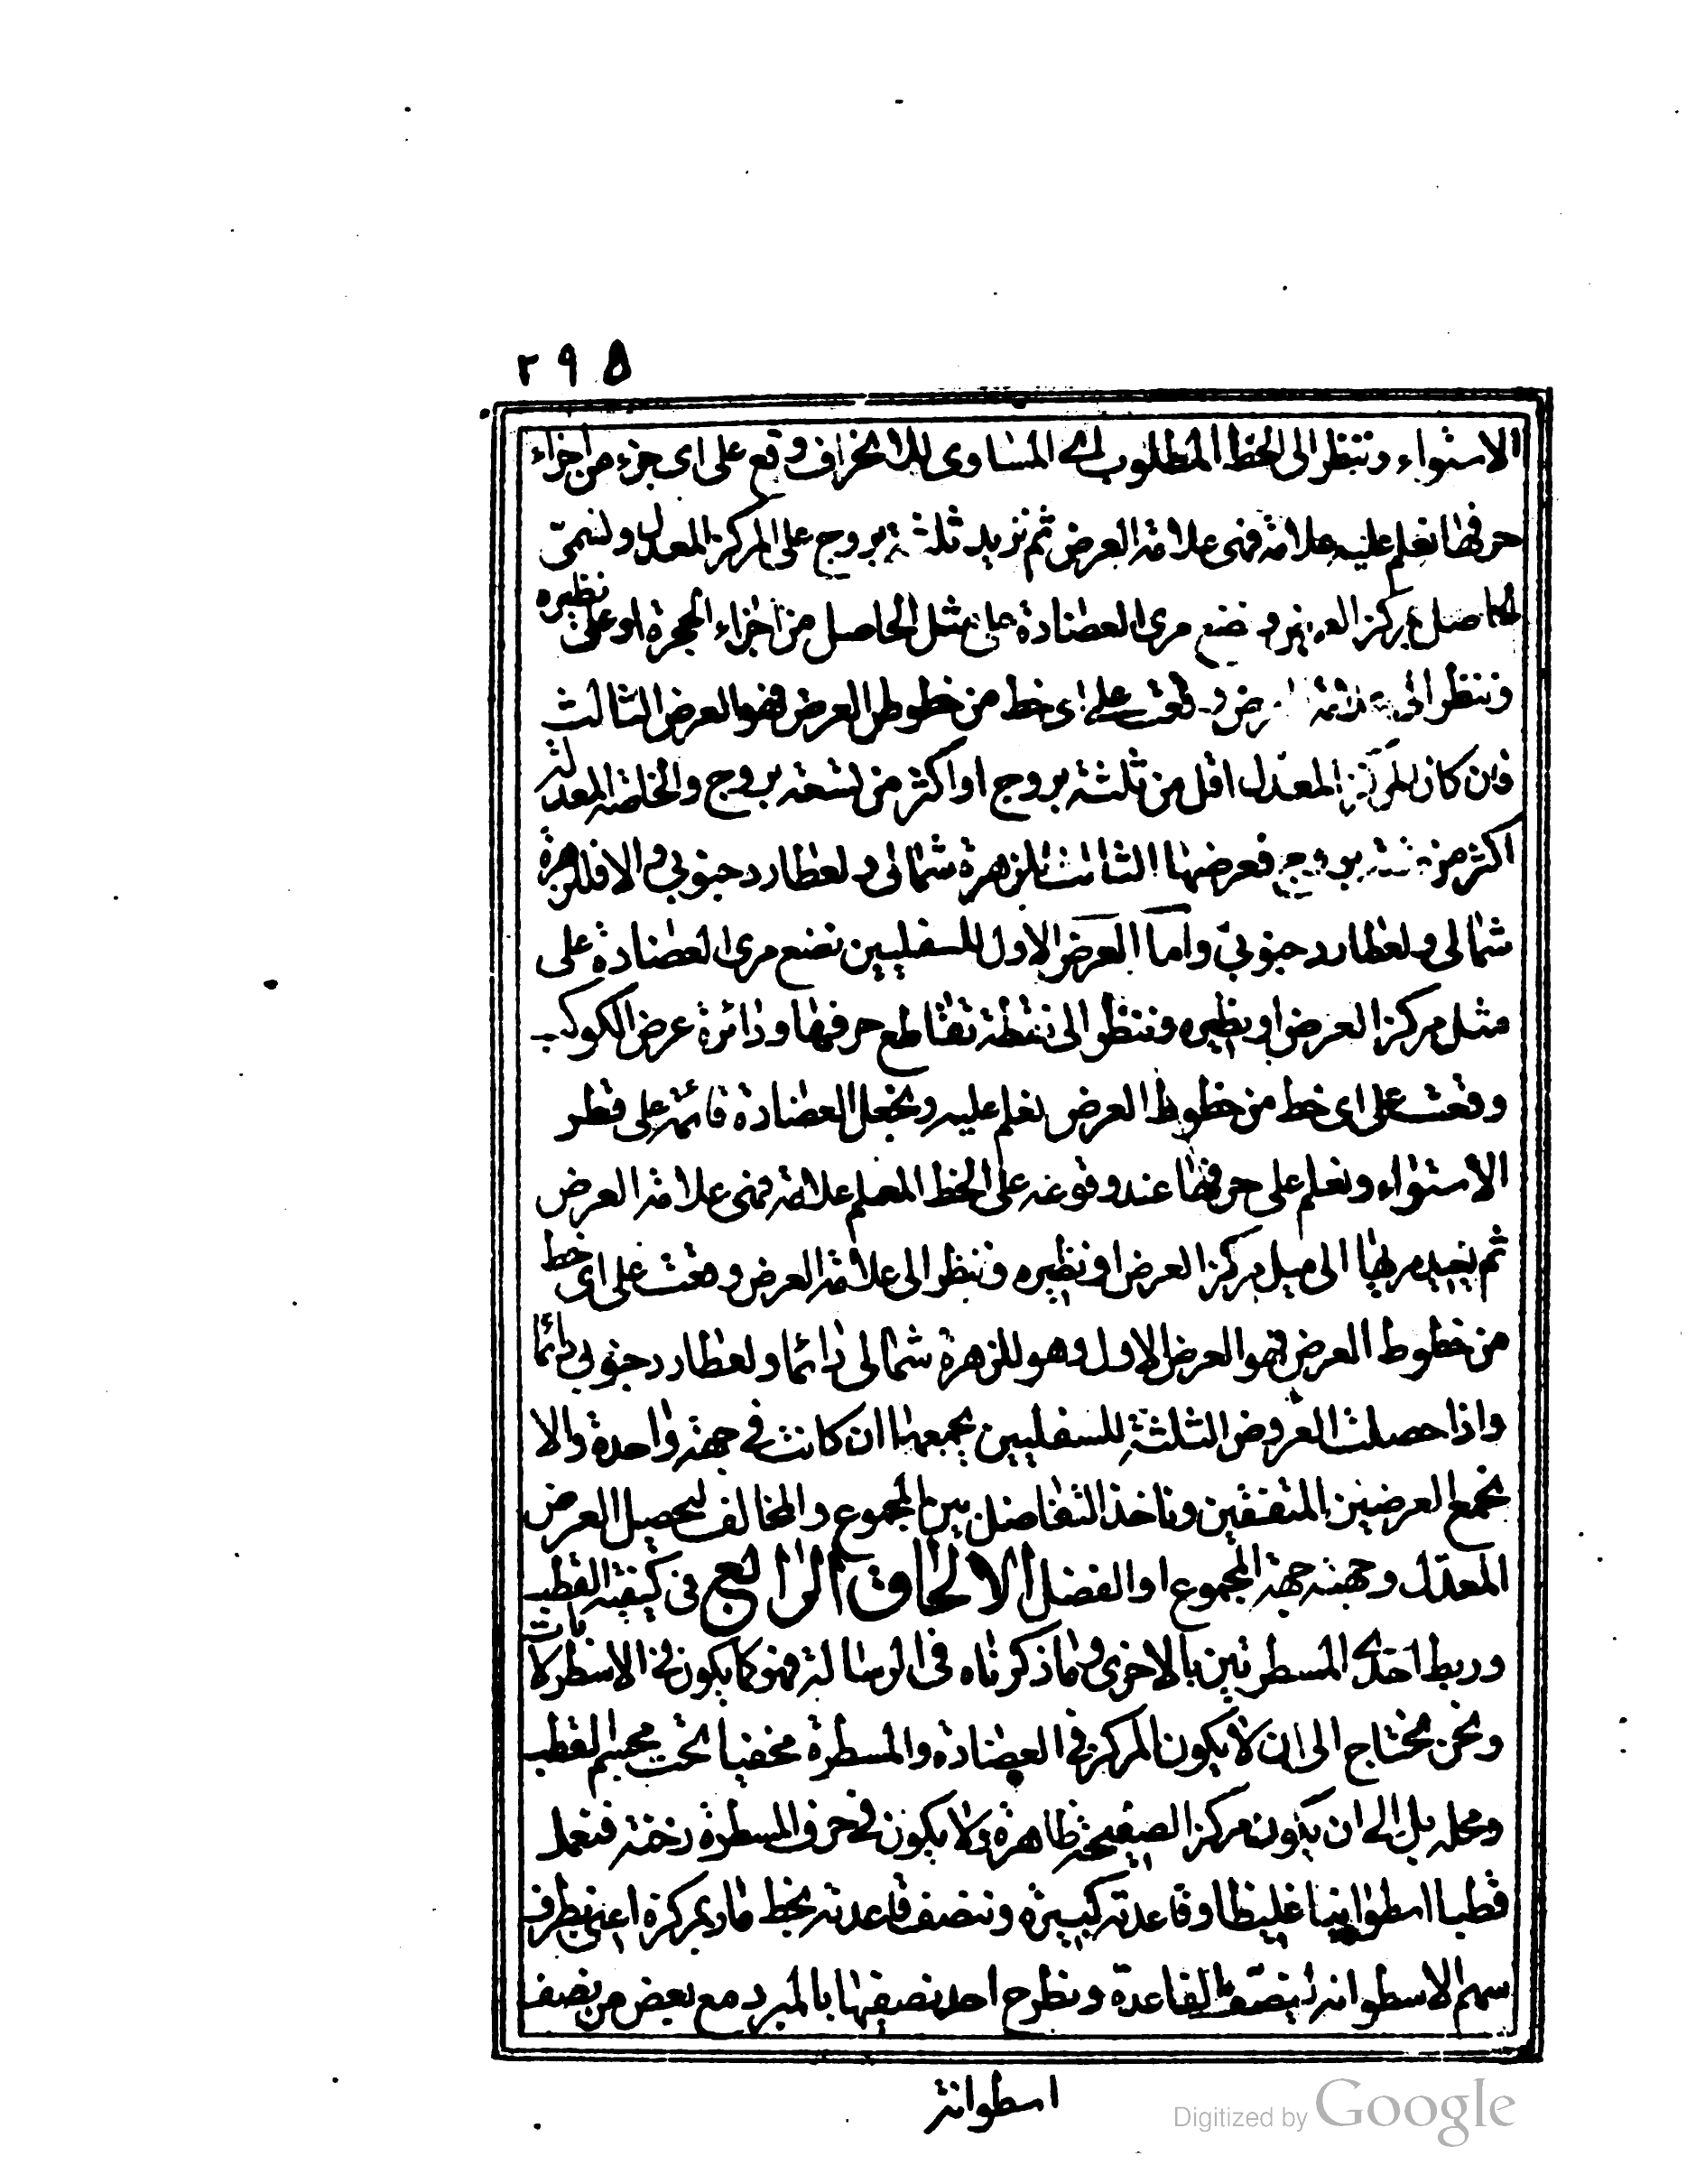 ٢٩٥
الاستواء وننظر الى الخط المطلوب له المساوى للانحراف وقع على اى جزء من اجزاء
حرفها نعلم عليه علامة فهى علامة العرض ثم نزيد ثلثة بروج على المركز المعدل ونسمى
الحاصل مركز العرض ونضع مرى العضادة على مثل الحاصل من اجزاء الحجرة او على نظيره
وننظر الى علامة العرض وقعت على اى خط من خطوط العرض فهو العرض الثالث
فان كان المركز المعدل اقل من ثلثة بروج او اكثر من تسعة بروج والخاصة المعدلة
اكثر من ستة بروج فعرضها الثالث للزهرة شمالى ولعطارد جنوبى والا فللزهرة
شمالى ولعطارد جنوبى واما العرض الاول للسفليين نضع مرى العضادة على
مثل مركز العرض او نظيره وننظر الى نقطة تقاطع حرفها ودائرة عرض الكوكب
وقعت على اى خط من خطوط العرض نعلم عليه ونجعل العضادة قائمة على قطر
الاستواء ونعلم على حرفها عند وقوعه على الخط المعلم علامة فهى علامة العرض
ثم نعيد مريها الى ميل مركز العرض او نظيره وننظر الى علامة العرض وقعت على اى خط
من خطوط العرض فهو العرض الاول وهو للزهرة شمالى دائما ولعطارد جنوبى دائما
واذا حصلت العروض الثلثة للسفليين نجمعها ان كانت فى جهة واحدة والا
نجمع العرضين المتفقين وناخذ التفاضل بين المجموع والمخالف ليحصل العرض
المعدل وجهته جهة المجموع او الفضل الالحاق الرابع فى كيفية القطب
وربط احدى المسطرتين بالاخرى وما ذكرناه فى الرسالة فهو كما يكون فى الاسطرلابات
ونحن نحتاج الى ان لا يكون المركز فى العضادة والمسطرة مخفيا تحت جسم القطب
ومحله بل الى ان يكون مركز الصفيحة ظاهرة ولا يكون فى حرف المسطرة رخنة فنعمل
قطبا اسطوانيا غليظا وقاعدته كبيرة وننصف قاعدته بخط مار بمركزه اعنى بطرف
سهم الاسطوانة لينصف القاعدة ونطرح احد نصفيها بالمبرد مع بعض من نصف
اسطوانة
Digitized by Google